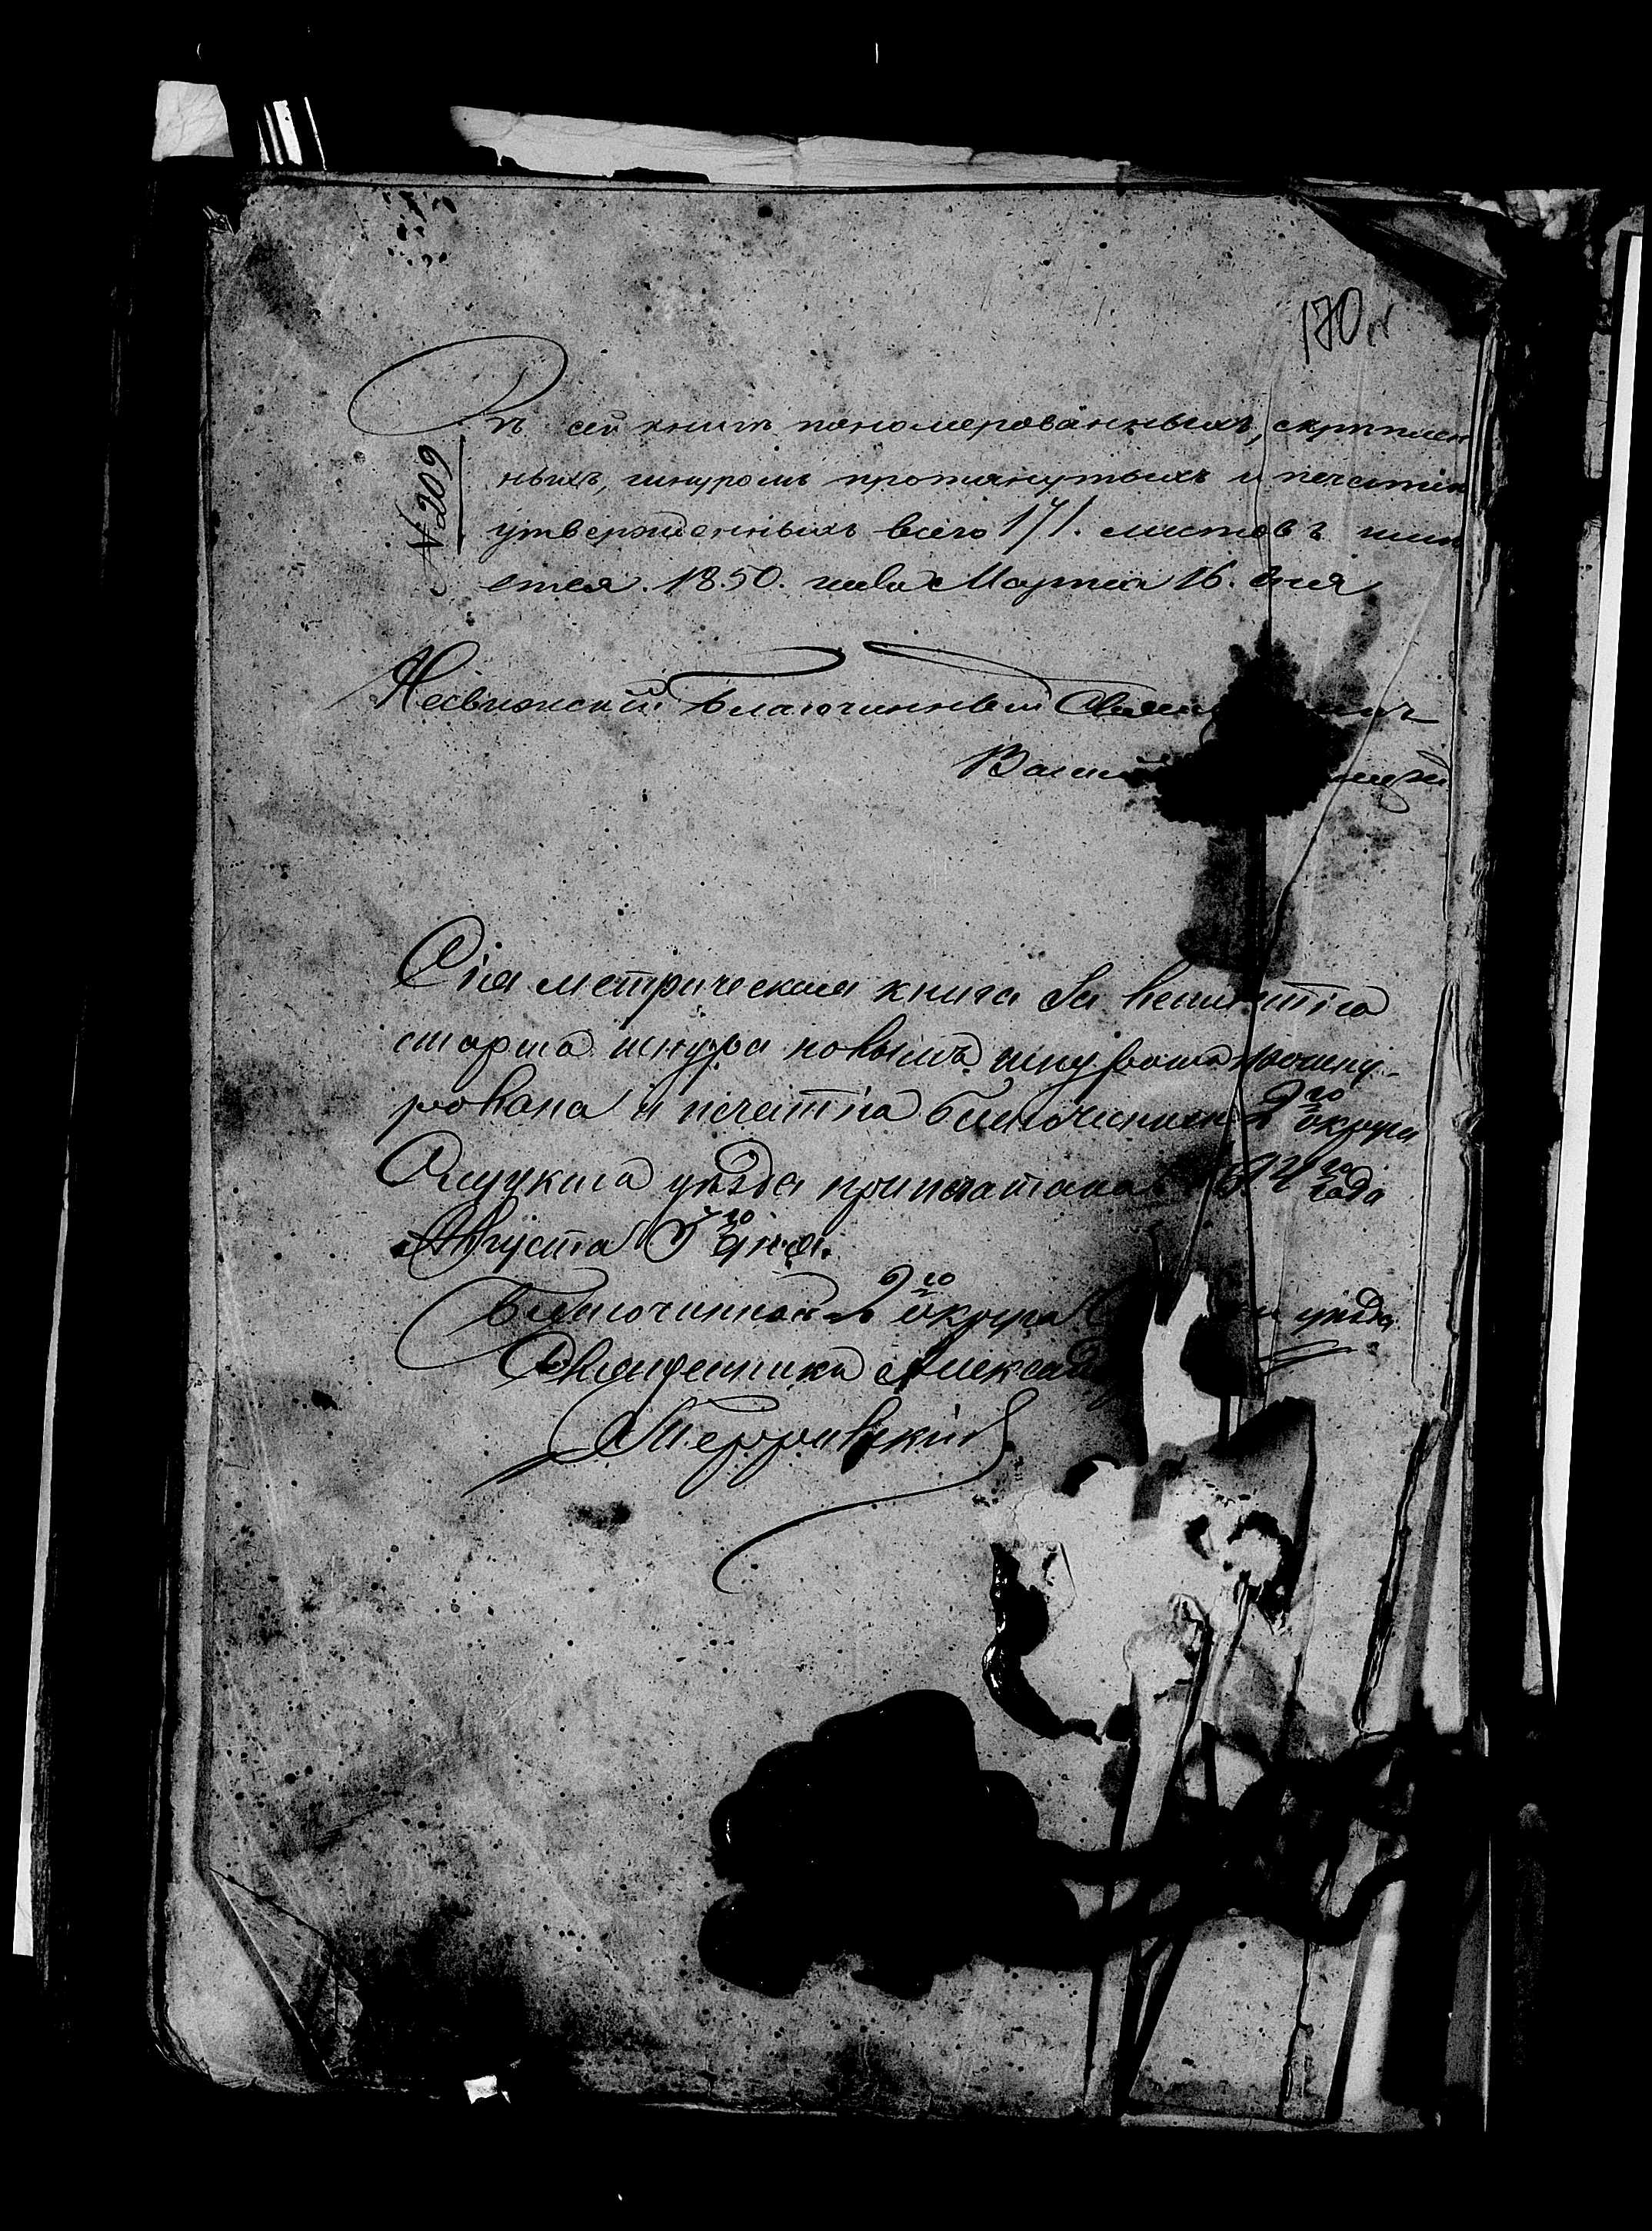 170
№ 209
Въ сей книгѣ пономерованныхъ, скрѣплен
ныхъ, шнуромъ протянутыхъ и печатью
утвержденныхъ всего 171. листовъ имѣ
ется. 1850. года Марта 16. дня
Несвижскій Благочинный
Сія метрическая книга за
стараго шнура новымъ шнуромъ прошну-
рована и печатію благочиннаго 2го округа
Слуцкаго уѣзда припечатана года
Августа дня.
Благочинный 2го округа уѣзда
Священникъ